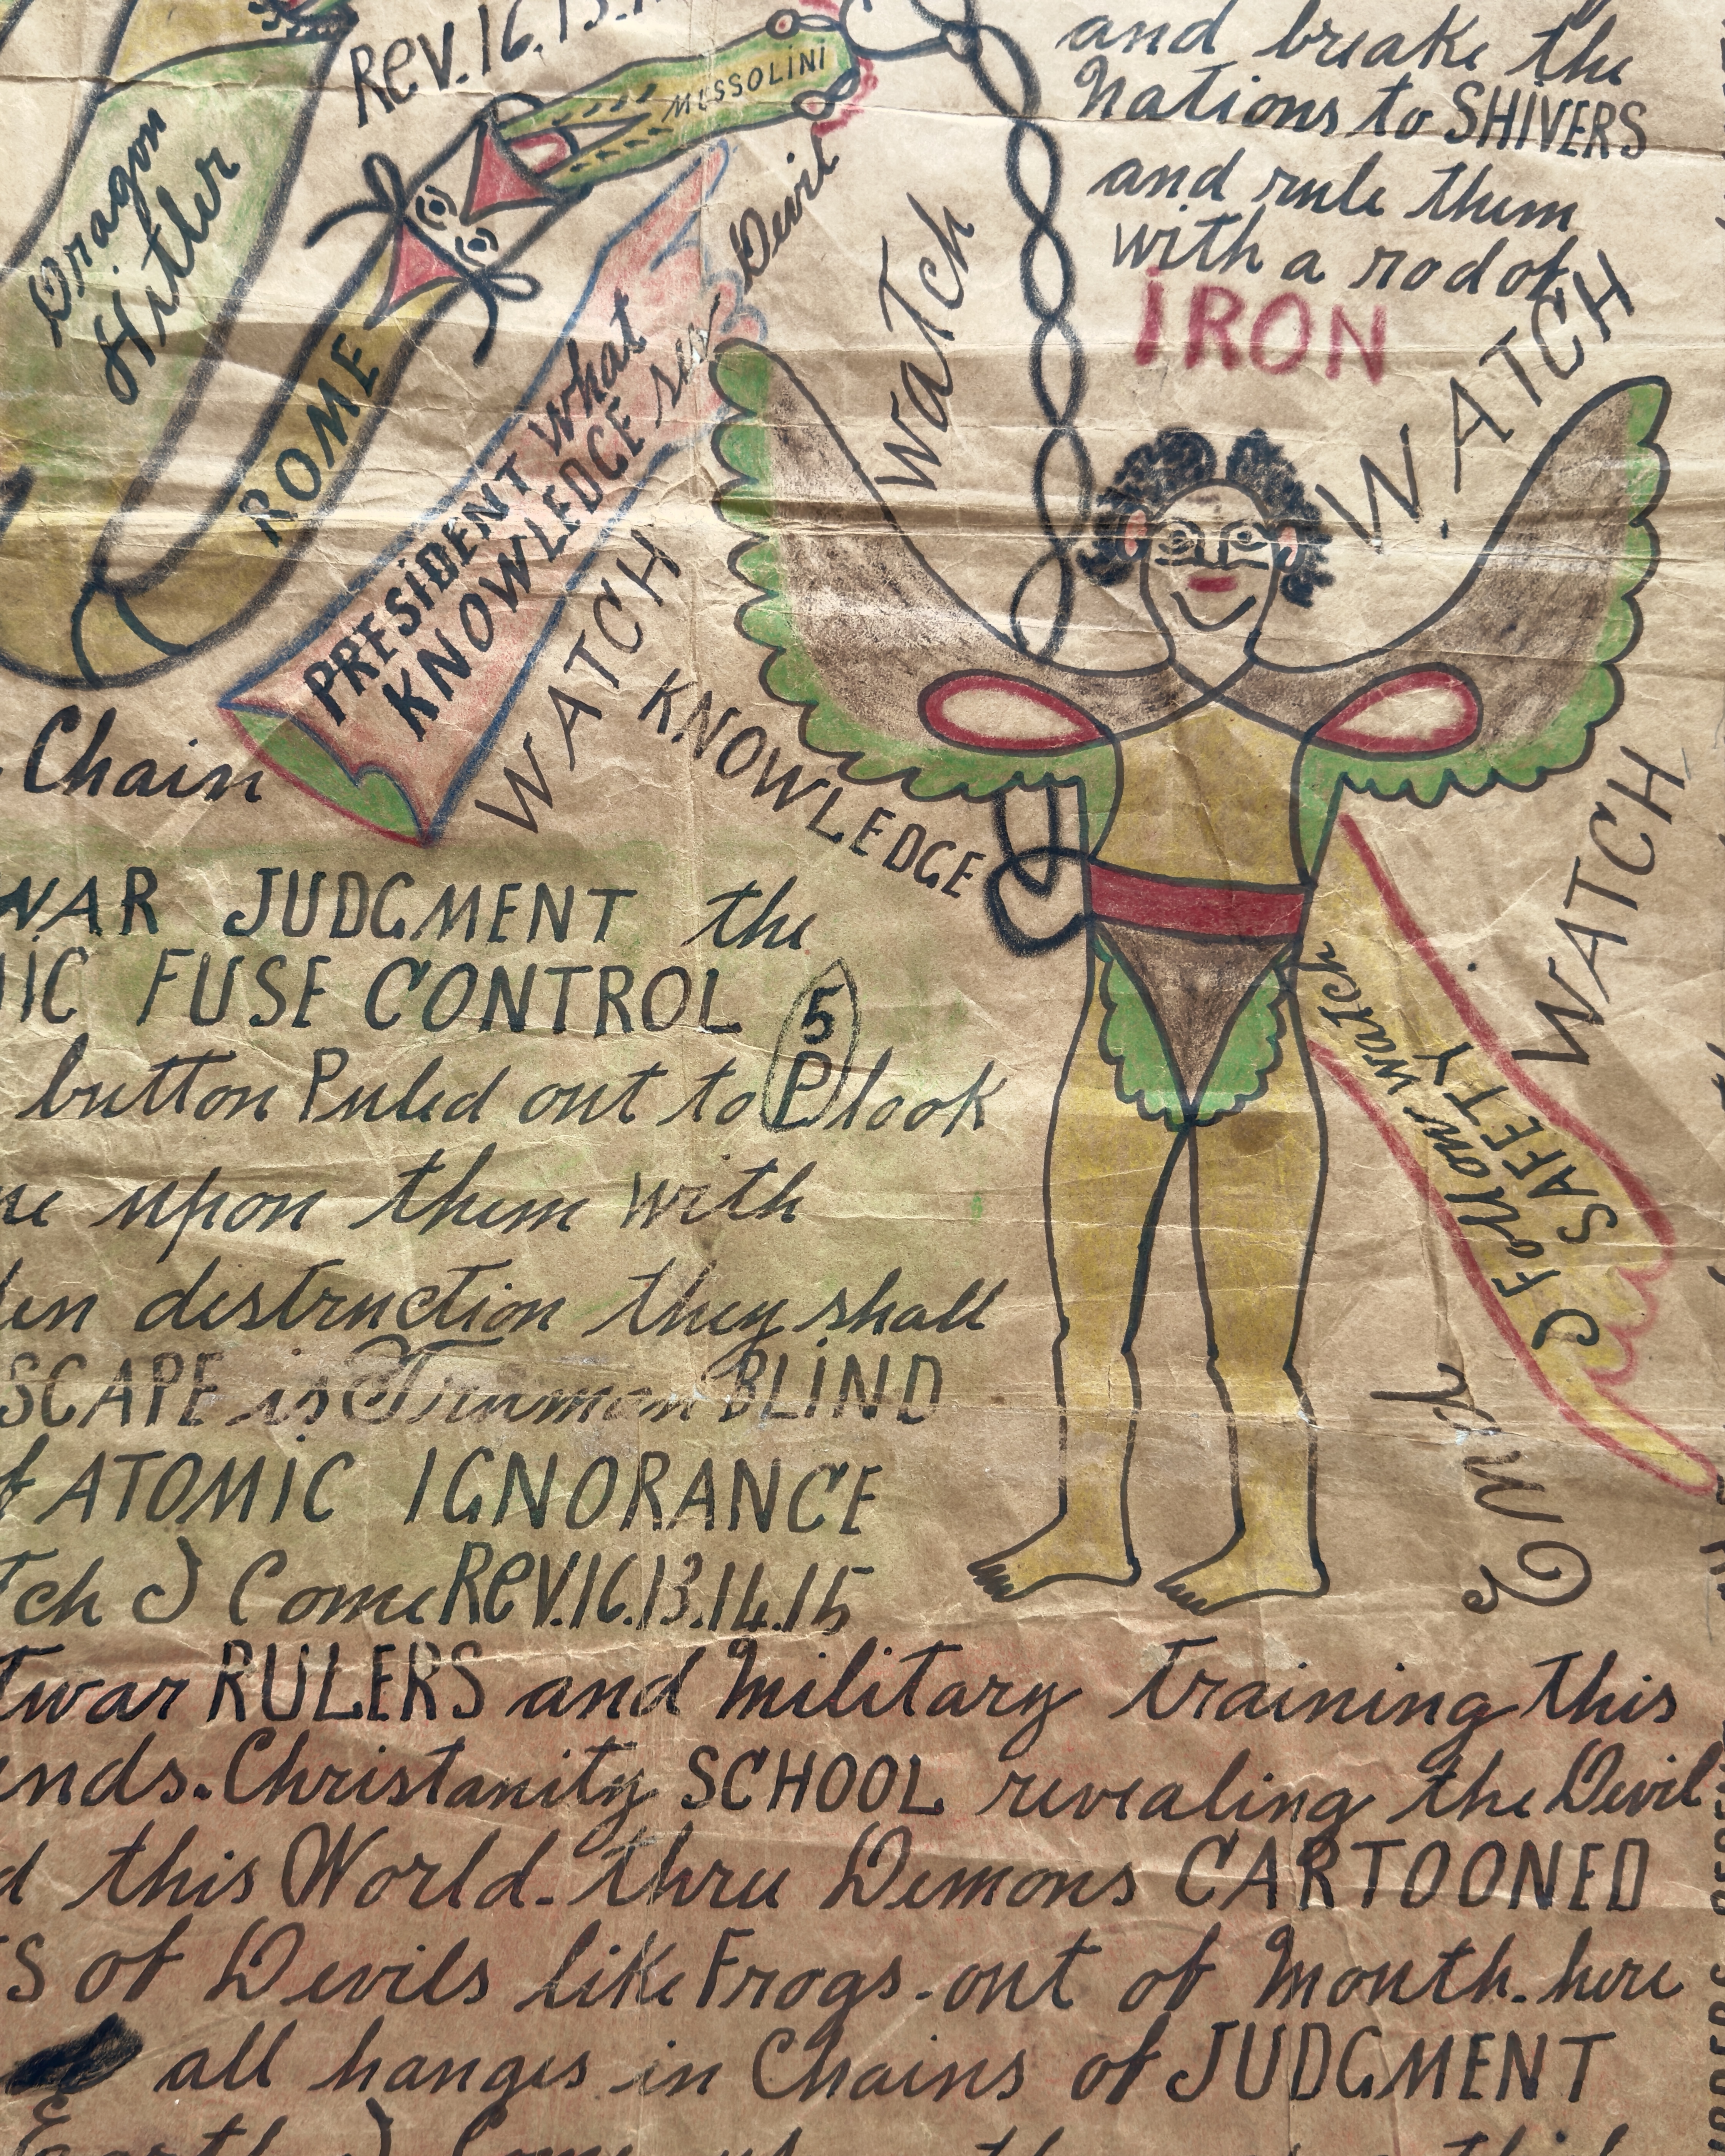 Rev.16.13.
MUSSOLINI
Dragon
Hitler
ROME
Devil
and break the
Nations to SHIVERS
and rule them
with a rod of
IRON
watch
WATCH
PRESIDENT what
KNOWLEDGE
WATCH
KNOWLEDGE
Chain
WATCH
I Follow watch
SAFETY
End
WAR JUDGMENT the
MIC FUSE CONTROL 5
button Puled out to P look
me upon them with
den destruction they shall
SCAPE is Truman BLIND
of ATOMIC IGNORANCE
tch I Come Rev.16.13.14.15
twar RULERS and Military training this
ends. Christanity SCHOOL revealing the Devil
d this World. thru Demons CARTOONED
S of Devils like Frogs. out of Mouth. here
all hanges in Chains of JUDGMENT
Earth I Come